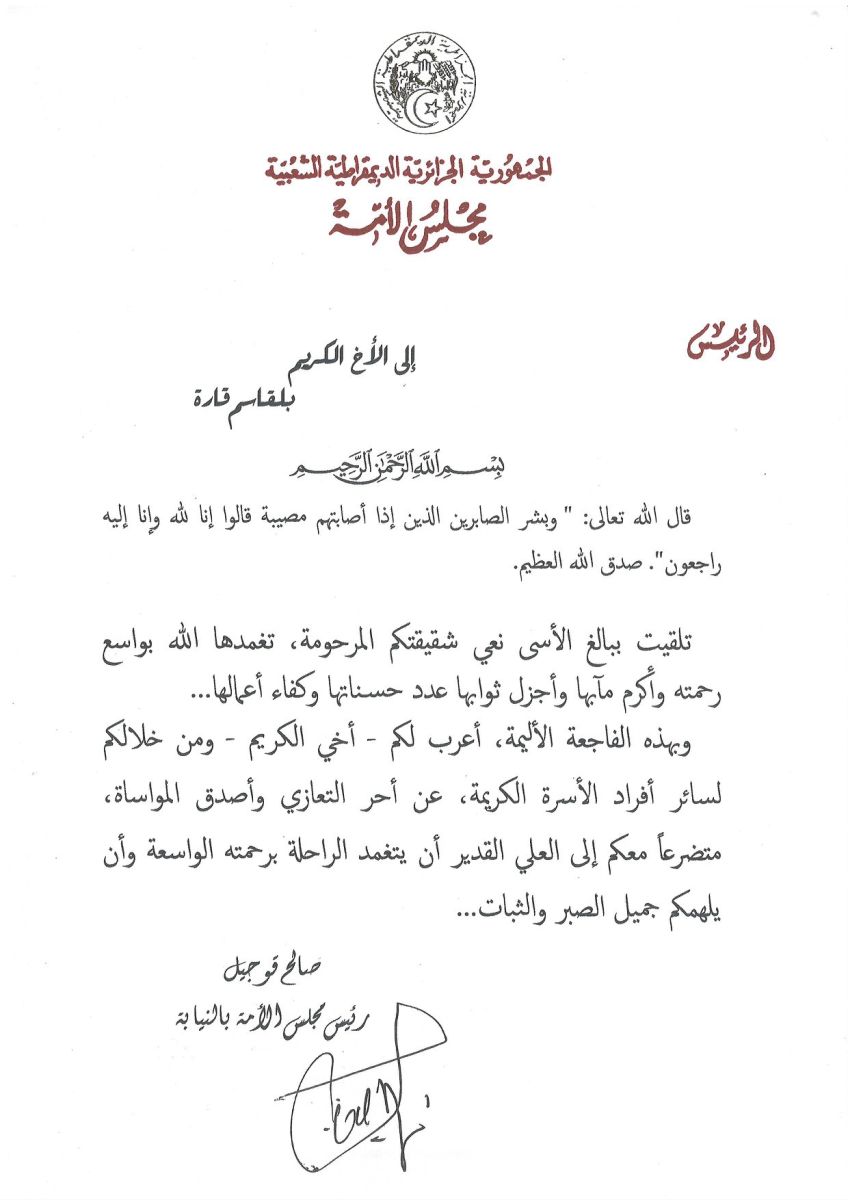 الجمهورية الجزائرية الديمقراطية الشعبية
مجلس الأمة
الرئيس
إلى الأخ الكريم
بلقاسم قارة
بسم الله الرحمن الرحيم
قال الله تعالى: " وبشر الصابرين الذين إذا أصابتهم مصيبة قالوا إنا لله وإنا إليه
راجعون". صدق الله العظيم.
تلقيت ببالغ الأسى نعي شقيقتكم المرحومة، تغمدها الله بواسع
رحمته وأكرم مآبها وأجزل ثوابها عدد حسناتها وكفاء أعمالها...
وبهذه الفاجعة الأليمة، أعرب لكم - أخي الكريم - ومن خلالكم
لسائر أفراد الأسرة الكريمة، عن أحر التعازي وأصدق المواساة،
متضرعاً معكم إلى العلي القدير أن يتغمد الراحلة برحمته الواسعة وأن
يلهمكم جميل الصبر والثبات...
صالح قوجيل
رئيس مجلس الأمة بالنيابة